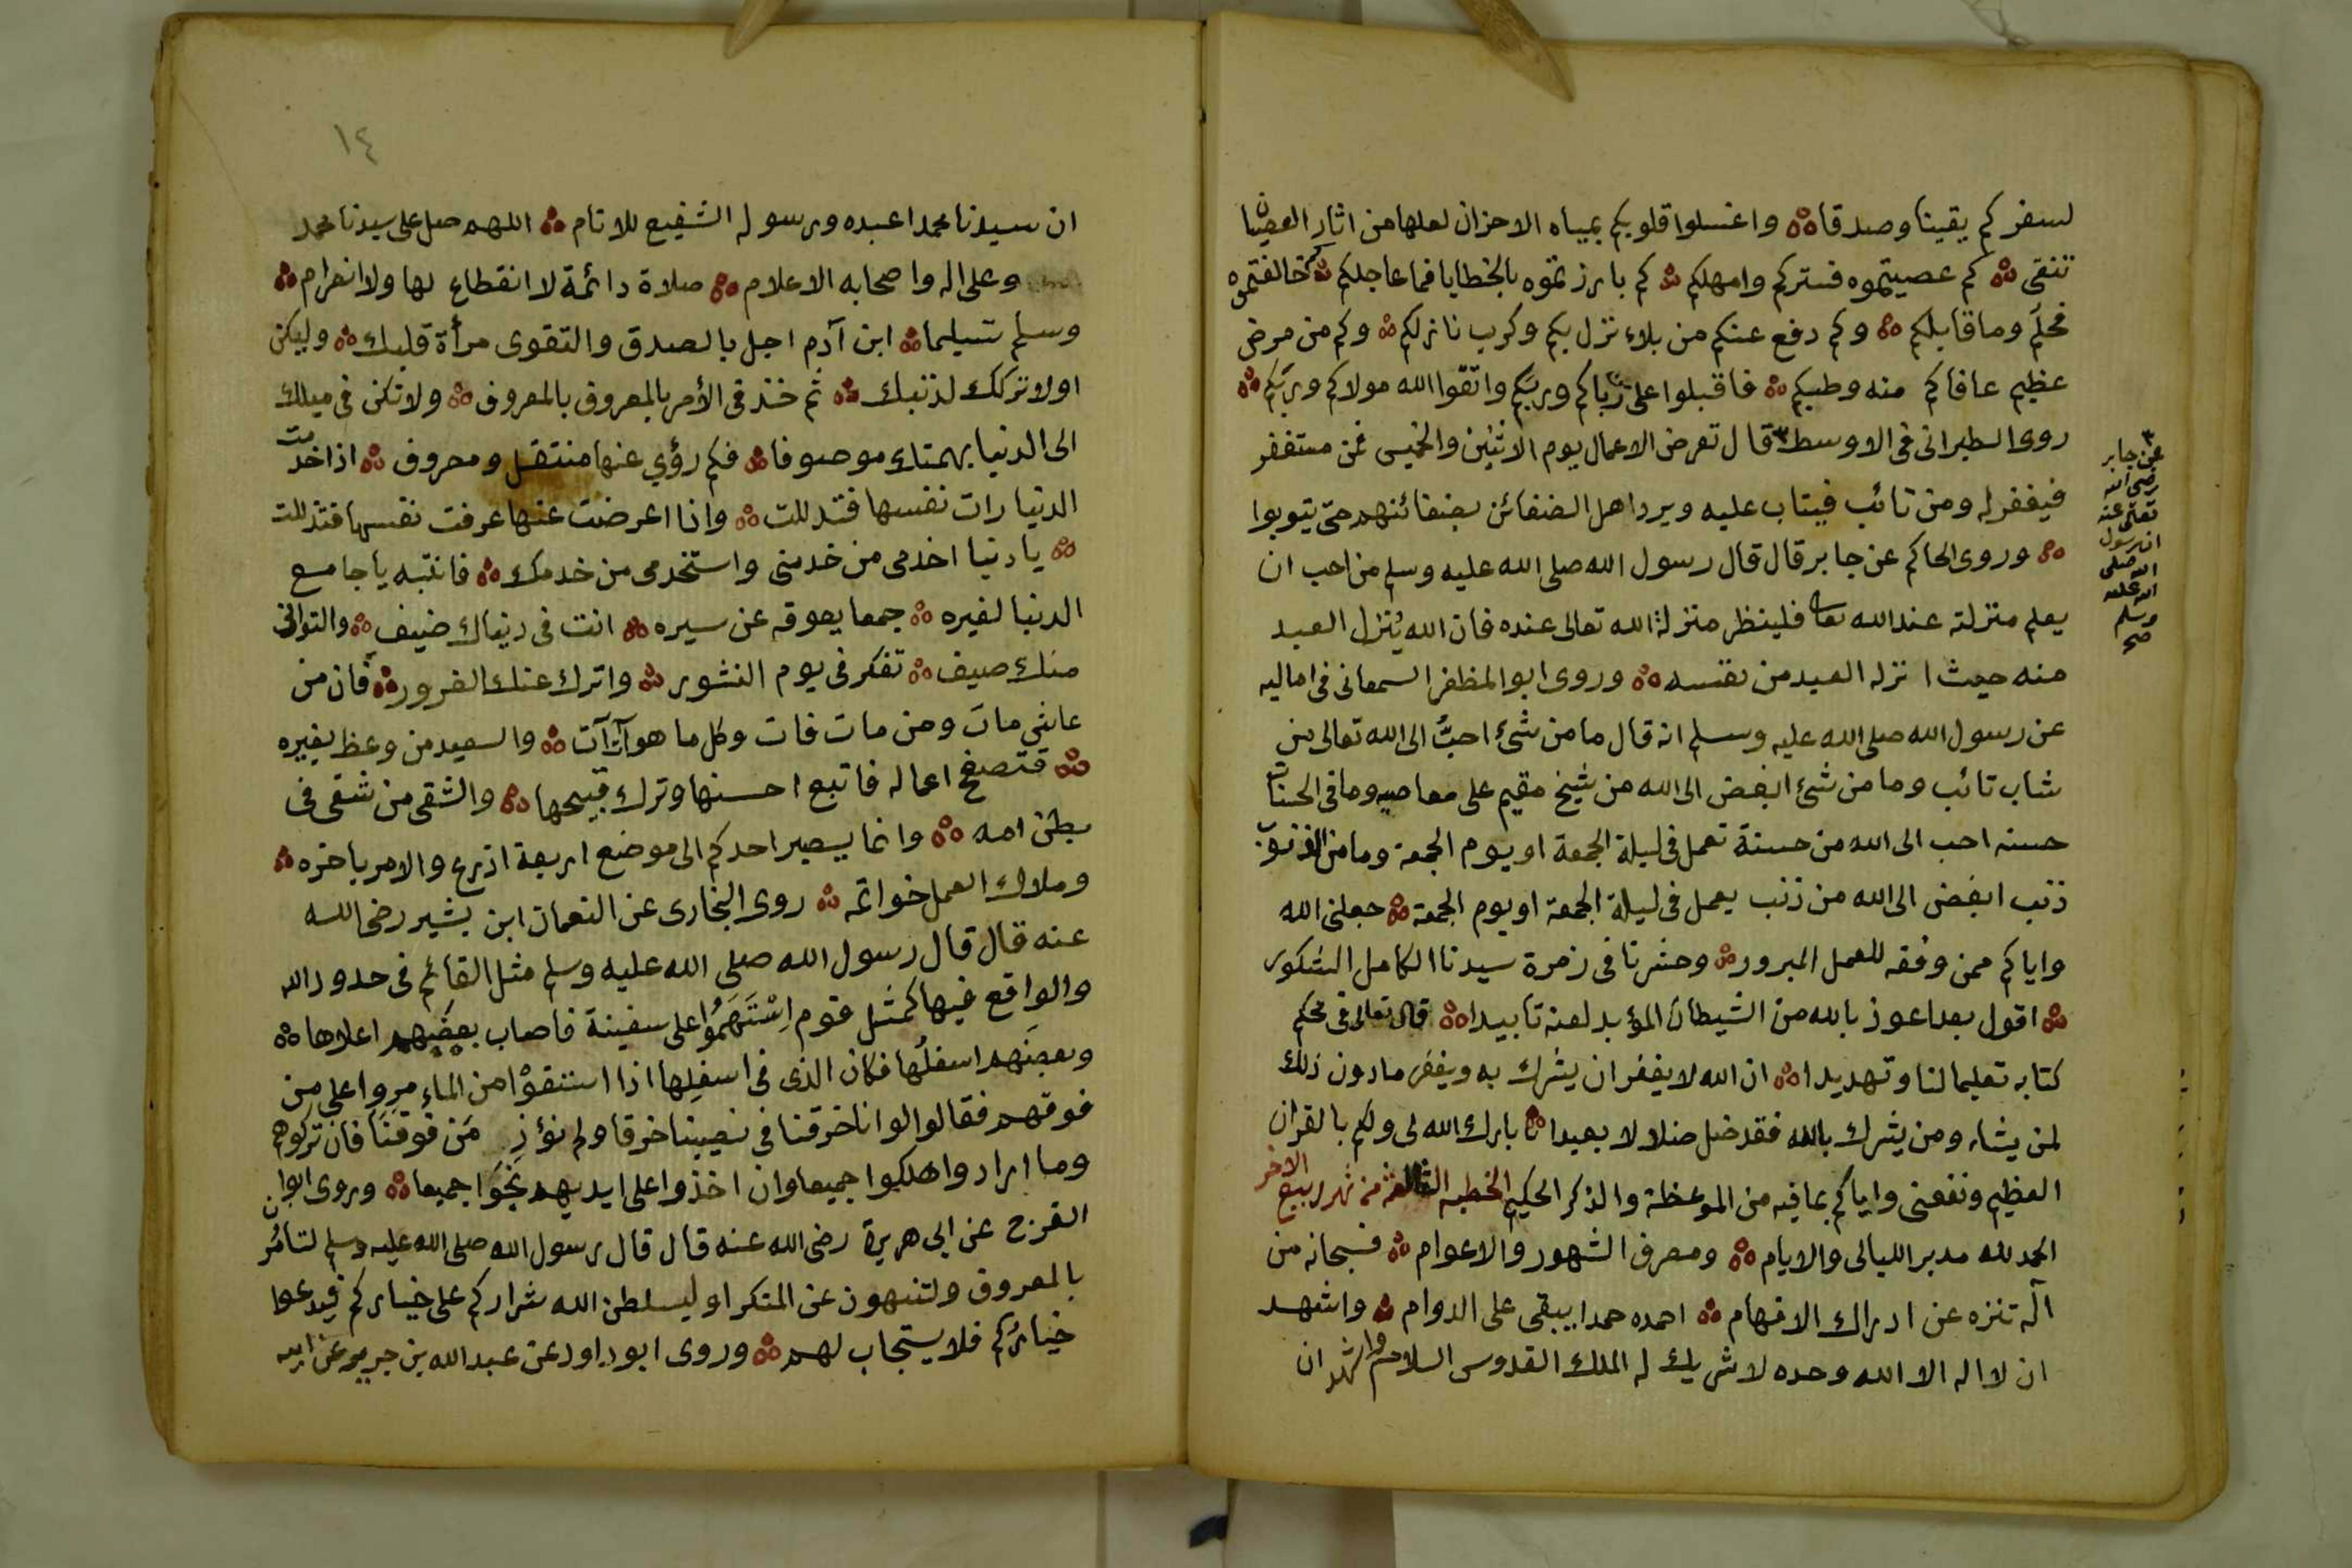 لسفركم يقينا وصدقا واغسلوا قلوبكم بمياه الاحزان لعلها من اثار العصيان
تنقى كم عصيتموه فستركم وامهلكم كم بارزتموه بالخطايا فما عاجلكم كم خالفتموه
فحلم وما قابلكم وكم دفع عنكم من بلاء نزل بكم وكرب نازلكم وكم من مرض
عظيم عافاكم منه وطبيكم فاقبلوا على وربكم واتقوا الله مولاكم وربكم
روى الطبرانى فى الاوسط ٣ قال تعرض الاعمال يوم الاثنين والخميس فمن مستغفر
فيغفر له ومن تائب فيتاب عليه ويرد اهل الضغائن بضغائنهم حتى يتوبوا
وروى الحاكم عن جابر قال قال رسول الله صلى الله عليه وسلم من احب ان
يعلم منزلته عند الله تعا فلينظر منزلة الله تعالى عنده فان الله يُنزل العبد
منه حيث انزله العبد من نفسه وروى ابو المظفر السمعانى فى اماليه
عن رسول الله صلى الله عليه وسلم انه قال ما من شئ احبُّ الى الله تعالى من
شاب تائب وما من شئ ابغض الى الله من شيخ مقيم على معاصيه وما فى الحسنات
حسنه احب الى الله من حسنة تعمل فى ليلة الجمعة او يوم الجمعة وما من الذنوب
ذنب ابغض الى الله من ذنب يعمل فى ليلة الجمعة او يوم الجمعة جعلنى الله
واياكم ممن وفقه للعمل المبرور وحشرنا فى زمرة سيدنا الكامل الشكور
اقول بعد اعوذ بالله من الشيطان المؤبد لعنه تابيدا قال تعالى فى محكم
كتابه تعليما لنا وتهديدا ان الله لا يغفر ان يشرك به ويغفر ما دون ذلك
لمن يشاء ومن يشرك بالله فقد ضل ضلالا بعيدا بارك الله لى ولكم بالقران
العظيم ونفعنى واياكم بما فيه من الموعظة والذكر الحكيم الخطبه الثالثة من شهر ربيع الاخر
الحمد لله مدبر الليالى والايام ومصرف الشهور والاعوام فسبحانه من
آله تنزه عن ادراك الافهام احمده حمدا يبقى على الدوام واشهد
ان لا اله الا الله وحده لا شريك له الملك القدوس السلام واشهد ان
٣
عن جابر
رضى الله
تعالى عنه
ان رسول
الله صلى
الله عليه
وسلم
صح
١٤
ان سيدنا محمدا عبده ورسوله الشفيع للانام اللهم صل على سيدنا محمد
وعلى اله واصحابه الاعلام صلاة دائمة لا انقطاع لها ولا انصرام
وسلم تسليما ابن آدم اجل بالصدق والتقوى مرأة قلبك وليكن
اولا تركك لذنبك ثم خذ فى الأمر بالمعروف بالمعروف ولا تكن فى ميلك
الى الدنيا بهمتك موصوفا فكم رؤي عنها منتقل ومحروف اذا خدمت
الدنيا رات نفسها فتدللت واذا اعرضت عنها عرفت نفسها فتذللت
يا دنيا اخدمى من خدمنى واستخدمى من خدمك فانتبه يا جامع
الدنيا لغيره جمعا يعوقه عن سيره انت فى دنياك ضيف والتوانى
منك صيف تفكر فى يوم النشور واترك عنك الغرور فان من
عاش مات ومن مات فات وكل ما هو آت آت والسعيد من وعظ بغيره
فتصفح اعماله فاتبع احسنها وترك قبيحها والشقى من شقى فى
بطن امه وانما يصير احدكم الى موضع اربعة اذرع والامر باخره
وملاك العمل خواتمه روى البخارى عن النعمان ابن بشير رضى الله
عنه قال قال رسول الله صلى الله عليه وسلم مثل القائم فى حدود الله
والواقع فيها كمثل قوم اِسْتَهَمُوا على سفينة فاصاب بعضهم اعلاها
وبعضهم اسفلُها فكان الذى فى اسفلِها اذا استقوْا من الماء مروا على من
فوقهم فقالوا لو انا خرقنا فى نصيبنا خرقا ولم نؤذِ مَن فوقَنَا فان تركوهم
وما ارادوا هلكوا جميعا وان اخذوا على ايديهم نَجَوا جميعا وروى ابوا بن
الفرج عن ابى هريرة رضى الله عنه قال قال رسول الله صلى الله عليه وسلم لتامُر
بالمعروف ولتنهون عن المنكر او ليسلطن الله شراركم على خياركم فيدعوا
خيارُكم فلا يستجاب لهم وروى ابو داود عن عبد الله بن جرير عن ابيه